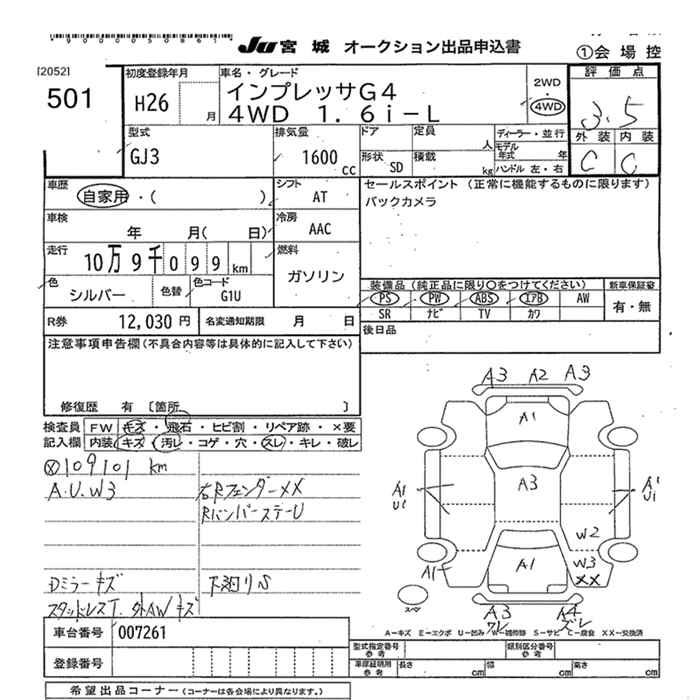 JU 宮城 オークション出品申込書
①会場控
[2052]
501
初度登録年月
H26 月
車名・グレード
インプレッサG4
4WD 1.6i-L
2WD・4WD
評価点
3.5
外装 内装
C C
型式
GJ3
排気量
1600 CC
ドア 定員 人
形状 SD 積載 kg
ディーラー・並行
モデル年式 年
ハンドル 左・右
車歴
自家用・( )
シフト
AT
セールスポイント (正常に機能するものに限ります)
バックカメラ
車検
年 月( 日)
冷房
AAC
走行
10万9千099 km
燃料
ガソリン
色
シルバー
色替
色コード
G1U
装備品(純正品に限り○をつけてください)
新車保証書
PS PW ABS エアB AW
SR ナビ TV カワ
有・無
R券 12,030 円
名変通知期限 月 日
後日品
注意事項申告欄(不具合内容等は具体的に記入して下さい)
修復歴 有 〔箇所 〕
検査員記入欄
FW キズ・飛石・ヒビ割・リペア跡・×要
内装 キズ・汚レ・コゲ・穴・スレ・キレ・破レ
109101 km
A.U.W3
右Rフェンダー××
RバンパーステーU
Dミラーキズ
下廻りS
スタッドレスT. 外AWキズ
A3 A2 A3
A1
A3
A1 U1
A1 U1
W2
W3
××
A1
A1
A3 ワレ
A4 ズレ
スペア
A-キズ E-エクボ U-凹み W-補修跡 S-サビ C-腐食 XX-交換済
車台番号 007261
登録番号
型式指定番号 参考
類別区分番号 参考
車庫証明用 参考
長さ cm
幅 cm
高さ cm
希望出品コーナー(コーナーは各会場により異なります。)